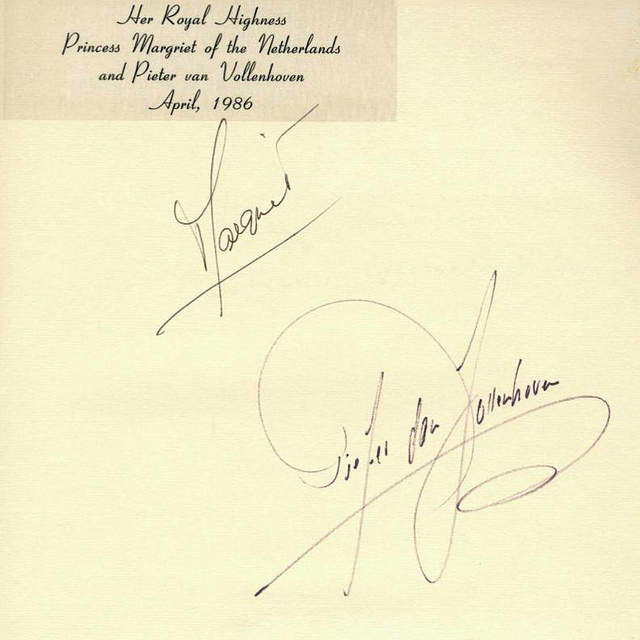 Her Royal Highness
Princess Margriet of the Netherlands
and Pieter van Vollenhoven
April, 1986
Margriet
Pieter van Vollenhoven